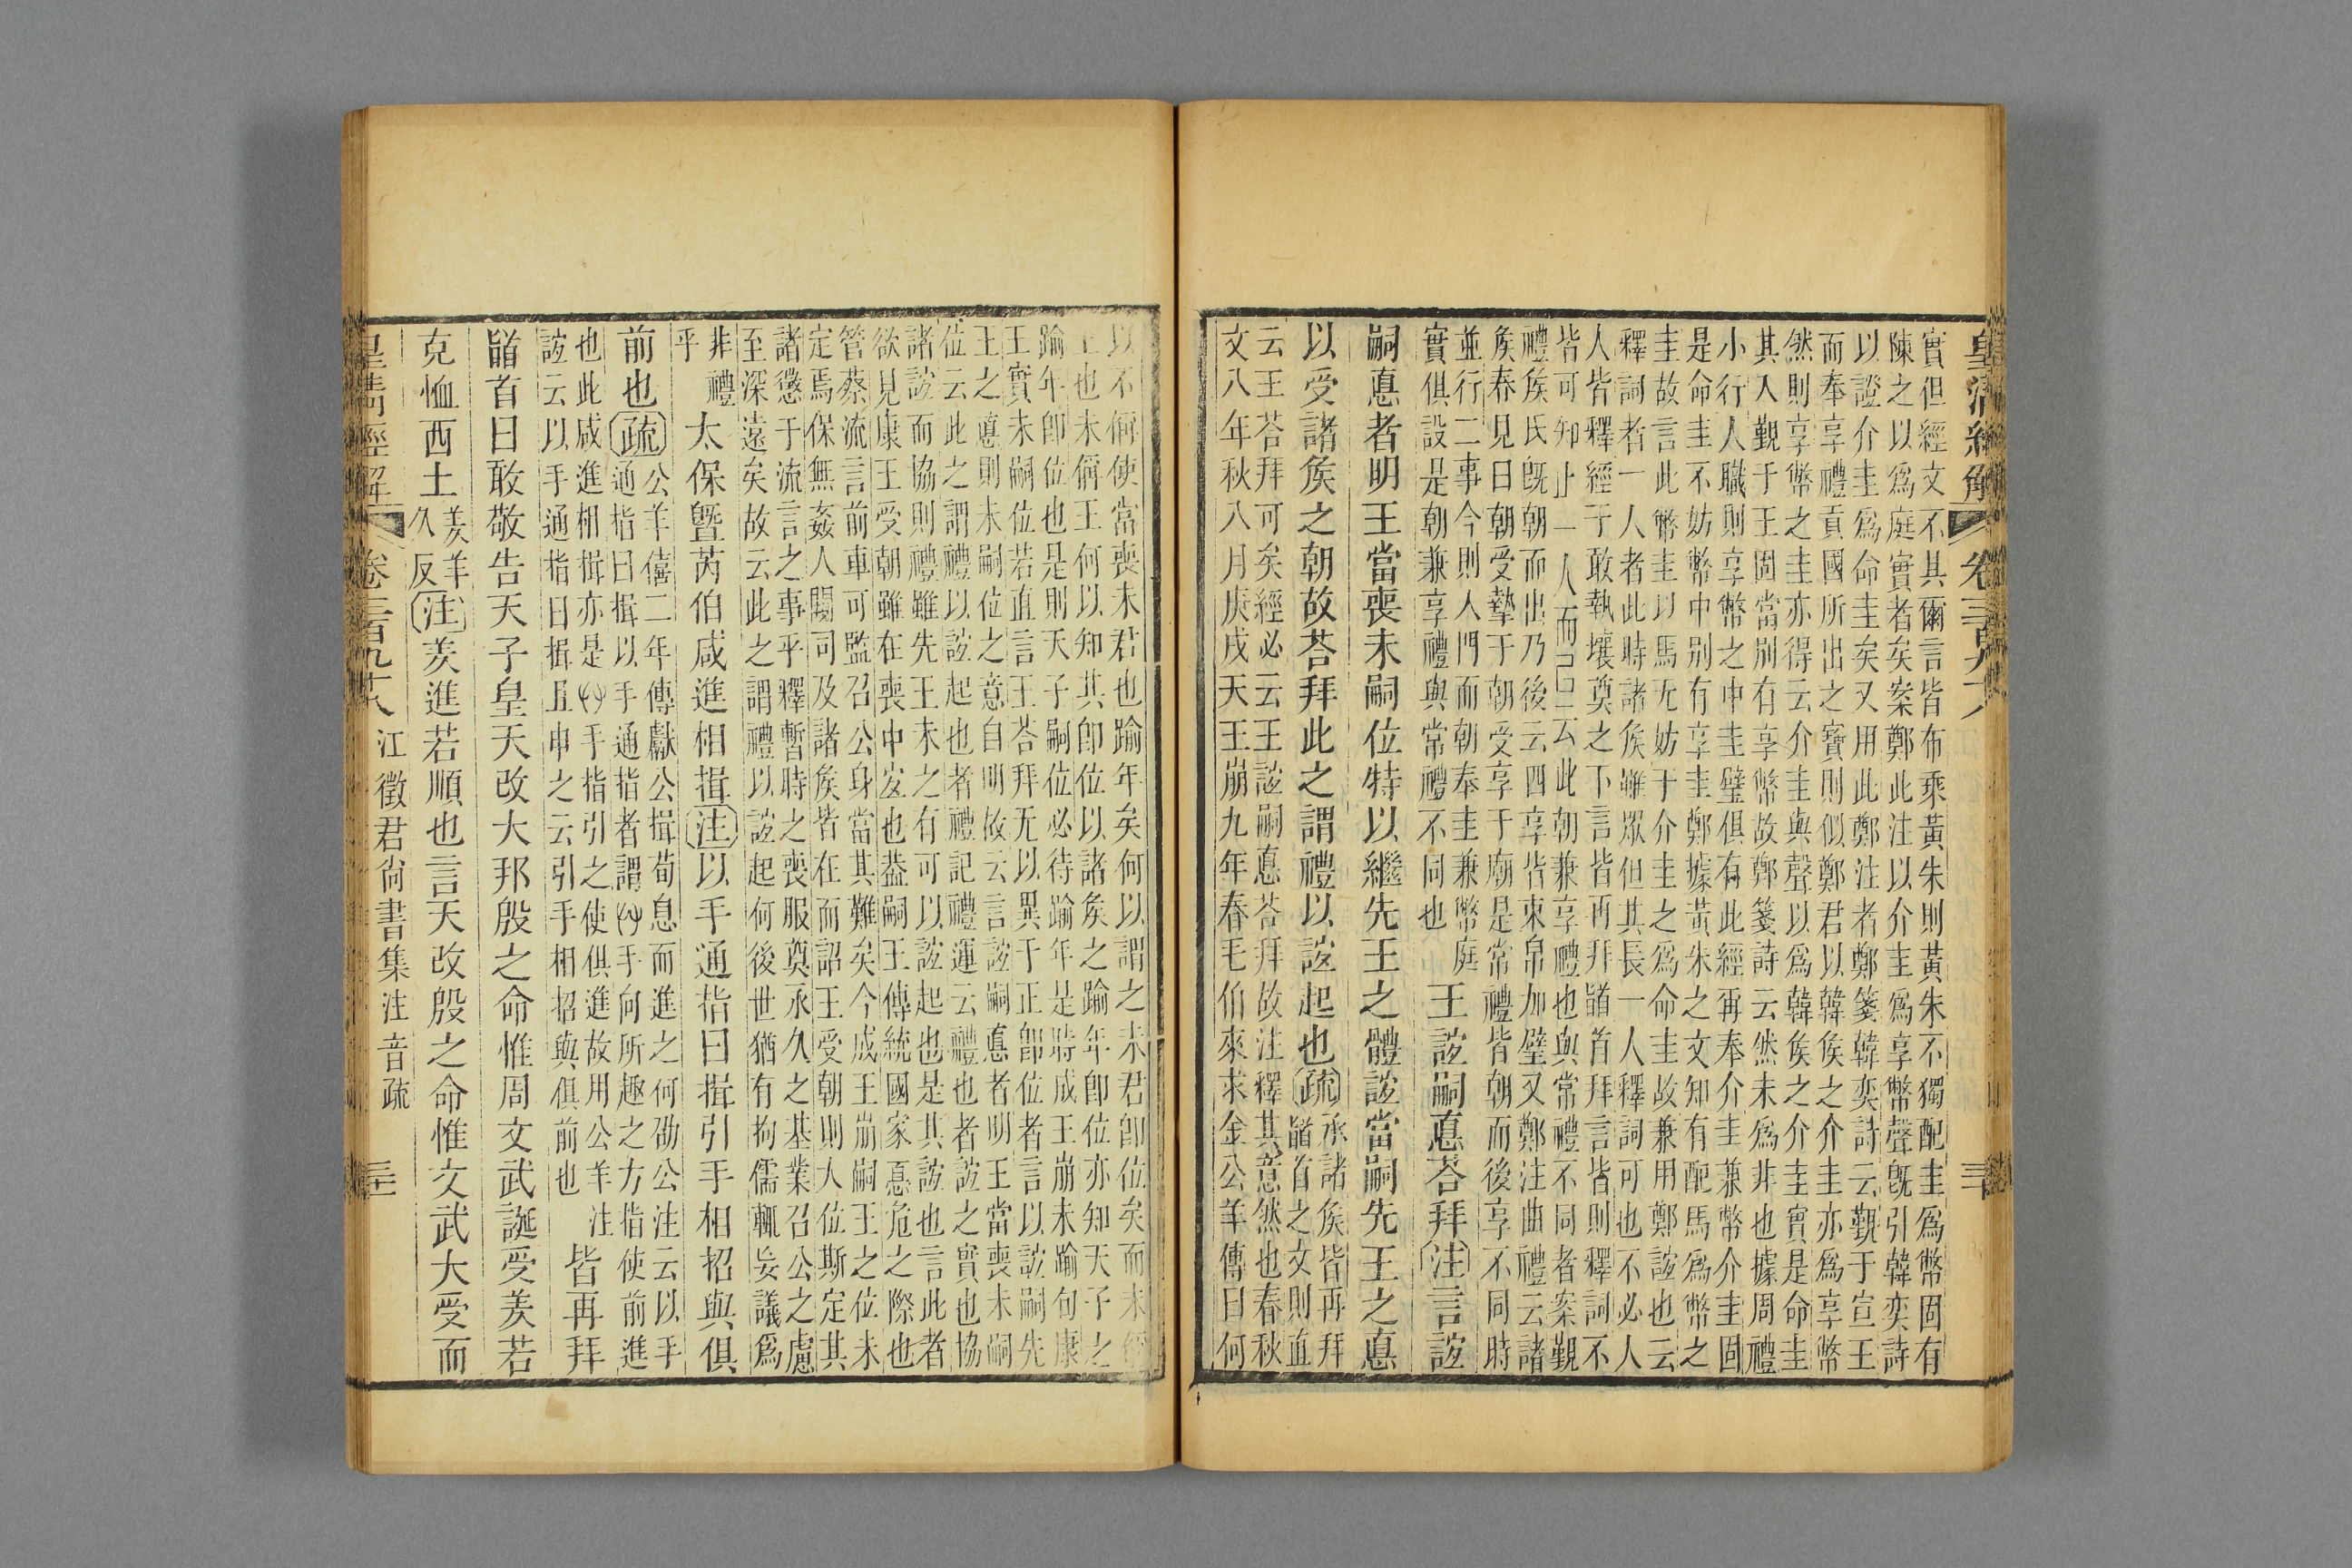 皇清經解 卷三百九十八 三十
實但經文不具爾言皆布乘黃朱則黃朱不獨配圭爲幣固有
陳之以爲庭實者矣案鄭此注以介圭爲享幣聲旣引韓奕詩
以證介圭爲命圭矣又用此鄭注者鄭箋韓奕詩云覲于宣王
而奉享禮貢國所出之寶則似鄭君以韓矦之介圭亦爲享幣
然則享幣之圭亦得云介圭與聲以爲韓矦之介圭實是命圭
其入覲于王固當別有享幣故鄭箋詩云然未爲非也據周禮
小行人職則享幣之中圭璧俱有此經再奉介圭兼幣介圭固
是命圭不妨幣中別有享圭鄭據黃朱之文知有配馬爲幣之
圭故言此幣圭以馬无妨于介圭之爲命圭故兼用鄭詃也云
釋詞者一人者此時諸矦雖眾但其長一人釋詞可也不必人
人皆釋經于敢執壤奠之下言皆再拜䭫首拜言皆則釋詞不
皆可知止一人而已云此朝兼享禮也與常禮不同者案覲
禮矦氏旣朝而出乃後云四享皆束帛加璧又鄭注曲禮云諸
矦春見曰朝受摯于朝受享于廟是常禮皆朝而後享不同時
並行二事今則人門而朝奉圭兼幣庭
實俱設是朝兼享禮與常禮不同也
王詃嗣悳荅拜注言詃
嗣悳者明王當喪未嗣位特以繼先王之體詃當嗣先王之悳
以受諸矦之朝故荅拜此之謂禮以詃起也疏
承諸矦皆再拜
䭫首之文則直
云王荅拜可矣經必云王詃嗣悳荅拜故注釋其意然也春秋
文八年秋八月庚戌天王崩九年春毛伯來求金公羊傳曰何
以不偁使當喪未君也踰年矣何以謂之未君卽位矣而未偁
王也未偁王何以知其卽位以諸矦之踰年卽位亦知天子之
踰年卽位也是則天子嗣位必待踰年是時成王崩未踰旬康
王實未嗣位若直言王荅拜无以異于正卽位者言以詃嗣先
王之悳則未嗣位之意自明故云言詃嗣悳者明王當喪未嗣
位云此之謂禮以詃起也者禮記禮運云禮也者詃之實也協
諸詃而協則禮雖先王未之有可以詃起也是其詃也言此者
欲見康王受朝雖在喪中宐也葢嗣王傳統國家悳危之際也
管蔡流言前車可監召公身當其難矣今成王崩嗣王之位未
定焉保無姦人闚司及諸矦皆在而詔王受朝則人位斯定其
諸懲于流言之事乎釋暫時之喪服奠承久之基業召公之慮
至深遠矣故云此之謂禮以詃起何後世猶有拘儒輒妄議爲
非禮
乎
太保曁芮伯咸進相揖注以手通指曰揖引手相招與俱
前也疏
公羊僖二年傳獻公揖荀息而進之何劭公注云以手
通指曰揖以手通指者謂手向所趣之方指使前進
也此咸進相揖亦是手指引之使俱進故用公羊注
詃云以手通指曰揖且申之云引手相招與俱前也
皆再拜
䭫首曰敢敬告天子皇天改大邦殷之命惟周文武誕受羑若
克恤西土
羑羊
久反
注羑進若順也言天改殷之命惟文武大受而
皇清經解 卷三百九十八 江徵君尙書集注音疏 三十一